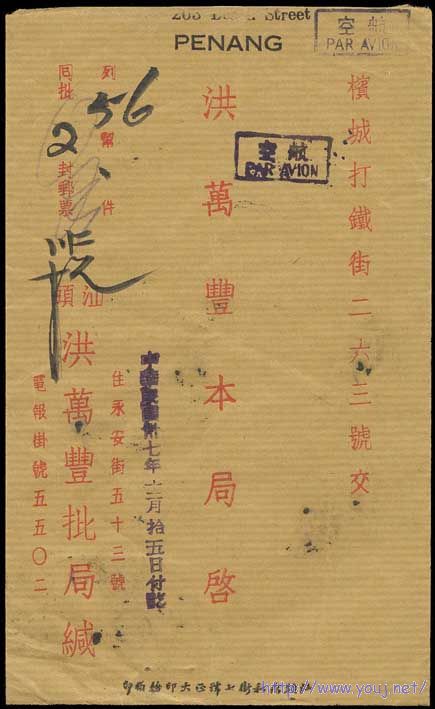 Street
PENANG
空航
PAR AVION
檳城打鐵街二六三號交
空航
PAR AVION
洪萬豐本局啓
中華民國卅七年十二月拾五日付訖
住永安街五十三號
汕頭
洪萬豐批局緘
電報掛號五五〇二
列幫 件
同批 封郵票
56
2
http://www.youj.net/